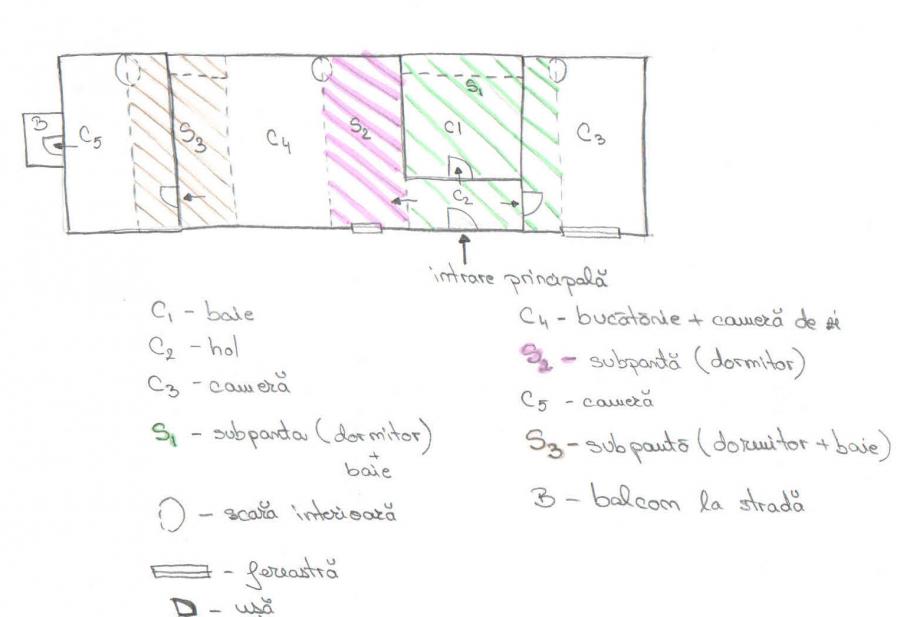 B
C5
S3
C4
S2
S1
C1
C2
C3
intrare principală
C1 - baie
C2 - hol
C3 - cameră
S1 - subpanta (dormitor)
+
baie
- scară interioară
- fereastră
- ușă
C4 - bucătărie + cameră de zi
S2 - subpantă (dormitor)
C5 - cameră
S3 - subpantă (dormitor + baie)
B - balcon la stradă